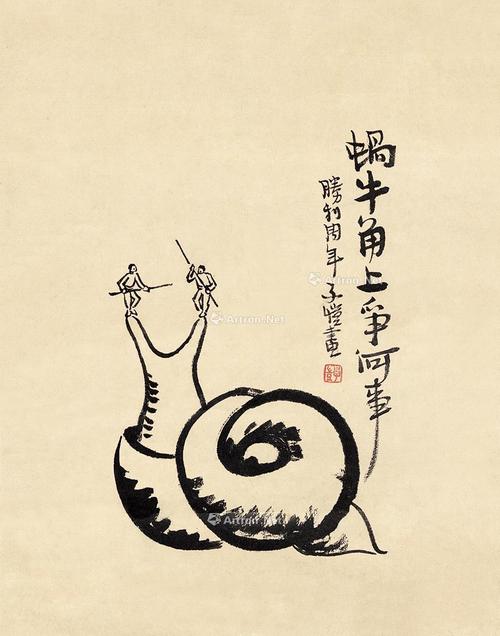 蝸牛角上爭何事
勝利周年子愷畫
Artron.Net
Artron.Net
Artron.Net